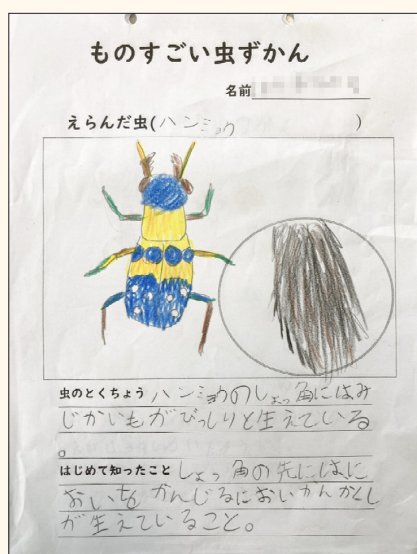 ものすごい虫ずかん
名前
えらんだ虫(ハンミョウ)
虫のとくちょう ハンミョウのしょっ角にはみ
じかいもがびっしりと生えている
。
はじめて知ったこと しょっ角の先にはに
おいを かんじるにおいかんかくし
が生えていること。